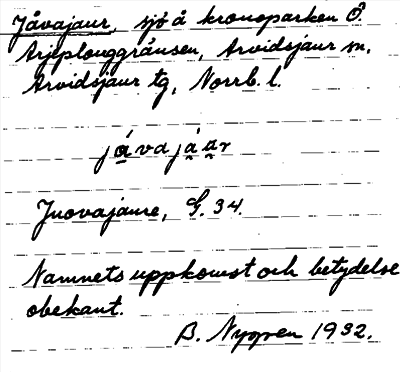 Jåvajaur, sjö å kronoparken Ö.
Arjeplouggränsen, Arvidsjaur sn,
Arvidsjaur tg, Norrb. l.
jávajáar
Juovajaure, G. 34.
Namnets uppkomst och betydelse
obekant.
B. Nygren 1932.